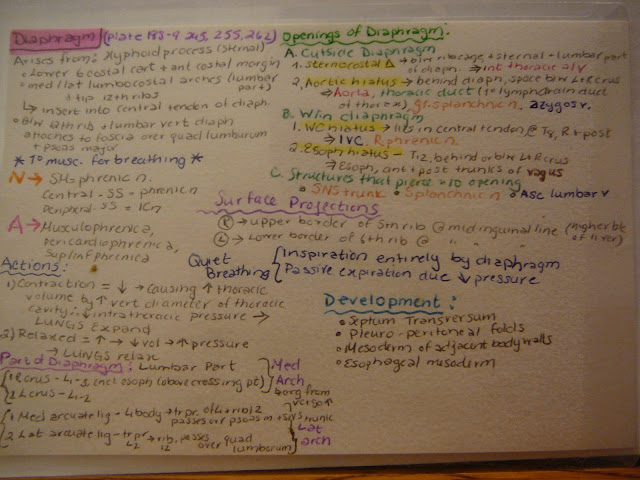 Diaphragm (plate 183-9
Arises from: Xyphoid process (sternal)
• Lower 6 costal cart + ant costal margin
• med / lat lumbocostal arches (lumbar part)
+ tip 12th ribs
↳ insert into central tendon of diaph.
• B/w 12th rib + lumbar vert diaph
attaches to fascia over quad lumborum
+ psoas major
* 1° musc. for breathing *
N → SM = phrenic n.
Central - SS = phrenic n
Peripheral SS = ICn
A → Musculophrenica,
pericardiophrenica,
Sup/inf phrenica
Actions:
1) Contraction = ↓ → causing ↑ thoracic
volume by ↑ vert diameter of thoracic
cavity ∴ ↓ intrathoracic pressure →
LUNGS EXPAND
2) Relaxed = ↑ → ↓ vol → ↑ pressure
→ LUNGS relax
Part of Diaphragm: Lumbar Part
1 R crus - L1-3, encl esoph (above crossing pt)
2 L crus - L1-2
Med
Arch
1 Med arcuate lig - body → tr pr,
passes over psoas m
2 Lat arcuate lig - tr pr → rib, passes
L2 12 over quad
lumborum
Lat
arch
Openings of Diaphragm:
A. Outside Diaphragm
1. Sternocostal Δ → b/w ribcage + sternal + lumbar part
of diaph. → int thoracic a/v
2. Aortic hiatus → behind diaph, space b/w L + R crus
→ Aorta, thoracic duct (1° lymph drain duct
of thorax) gr. splanchnic n. azygos v.
B. W/in diaphragm
1. VC hiatus → lies in central tendon @ T8, R + post
→ IVC, R phrenic n
2. Esoph hiatus - T12, behind or b/w L + R crus
→ Esoph, ant + post trunks of vagus
C. Structures that pierce = no opening
• SNS trunk • Splanchnic n • Asc lumbar v
Surface Projections
R → upper border of 5th rib @ midinguinal line (higher b/c
of liver)
L → Lower border of 6th rib @ " "
Quiet
Breathing
Inspiration entirely by diaphragm
Passive expiration due ↓ pressure
Development:
• Septum Transversum
• Pleuro-peritoneal folds
• Mesoderm of adjacent body walls
• Esophageal mesoderm